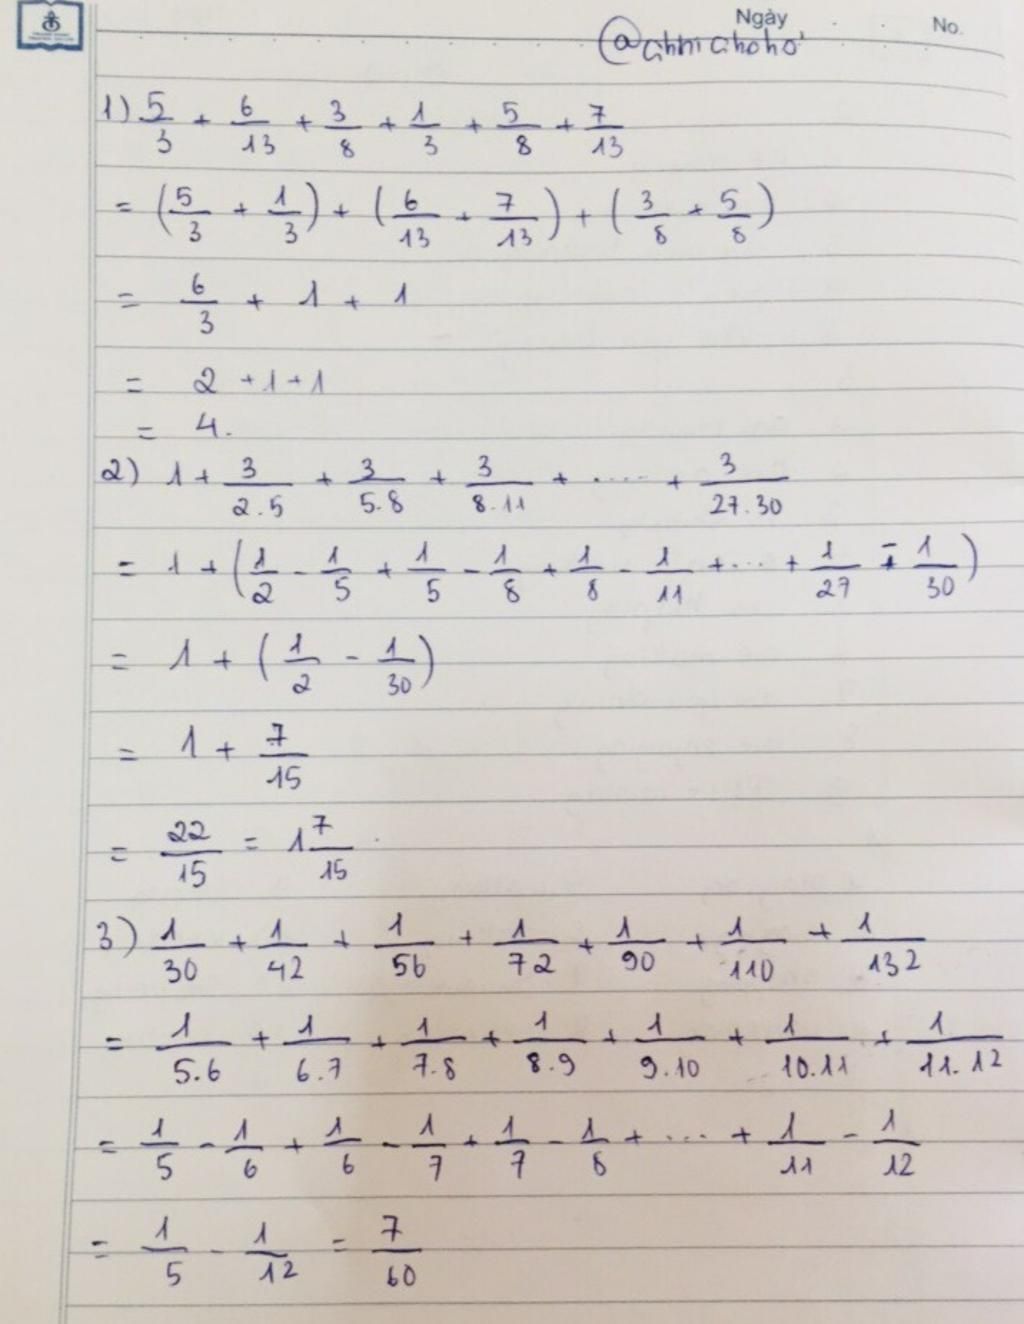 Ngày
No.
@chhichoho
1) 5/3 + 6/13 + 3/8 + 1/3 + 5/8 + 7/13
= (5/3 + 1/3) + (6/13 + 7/13) + (3/8 + 5/8)
= 6/3 + 1 + 1
= 2 + 1 + 1
= 4.
2) 1 + 3/2.5 + 3/5.8 + 3/8.11 + ..... + 3/27.30
= 1 + (1/2 - 1/5 + 1/5 - 1/8 + 1/8 - 1/11 + ... + 1/27 - 1/30)
= 1 + (1/2 - 1/30)
= 1 + 7/15
= 22/15 = 1 7/15
3) 1/30 + 1/42 + 1/56 + 1/72 + 1/90 + 1/110 + 1/132
= 1/5.6 + 1/6.7 + 1/7.8 + 1/8.9 + 1/9.10 + 1/10.11 + 1/11.12
= 1/5 - 1/6 + 1/6 - 1/7 + 1/7 - 1/8 + ... + 1/11 - 1/12
= 1/5 - 1/12 = 7/60